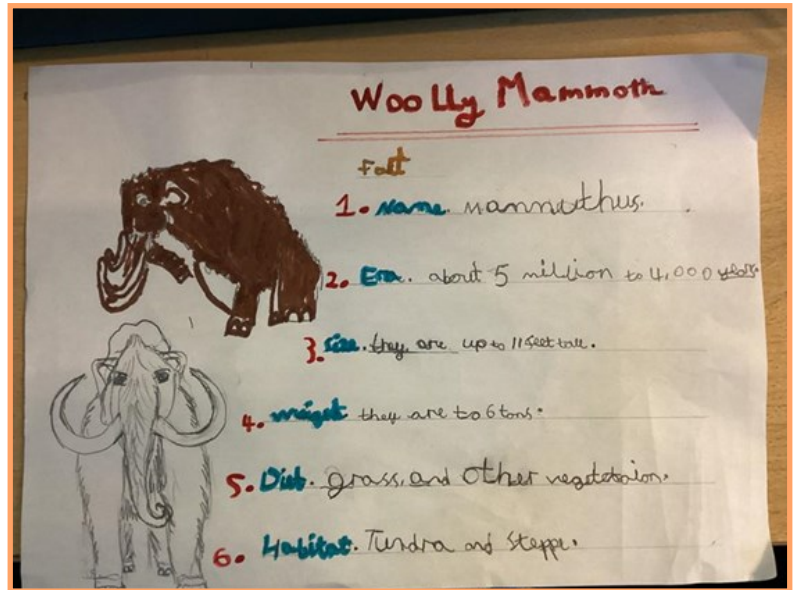 Woolly Mammoth
Fatt
1. Name. mannuthus.
2. Era. about 5 million to 4,000 years.
3. size. they are up to 11 feet tall.
4. weight they are to 6 tons.
5. Diet. grass, and other vegetetaion.
6. Habitat. Tundra and steppe.